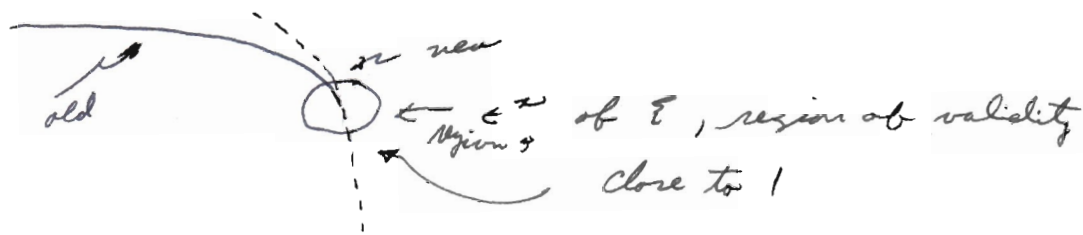 new
old
region of ξ, region of validity
close to 1